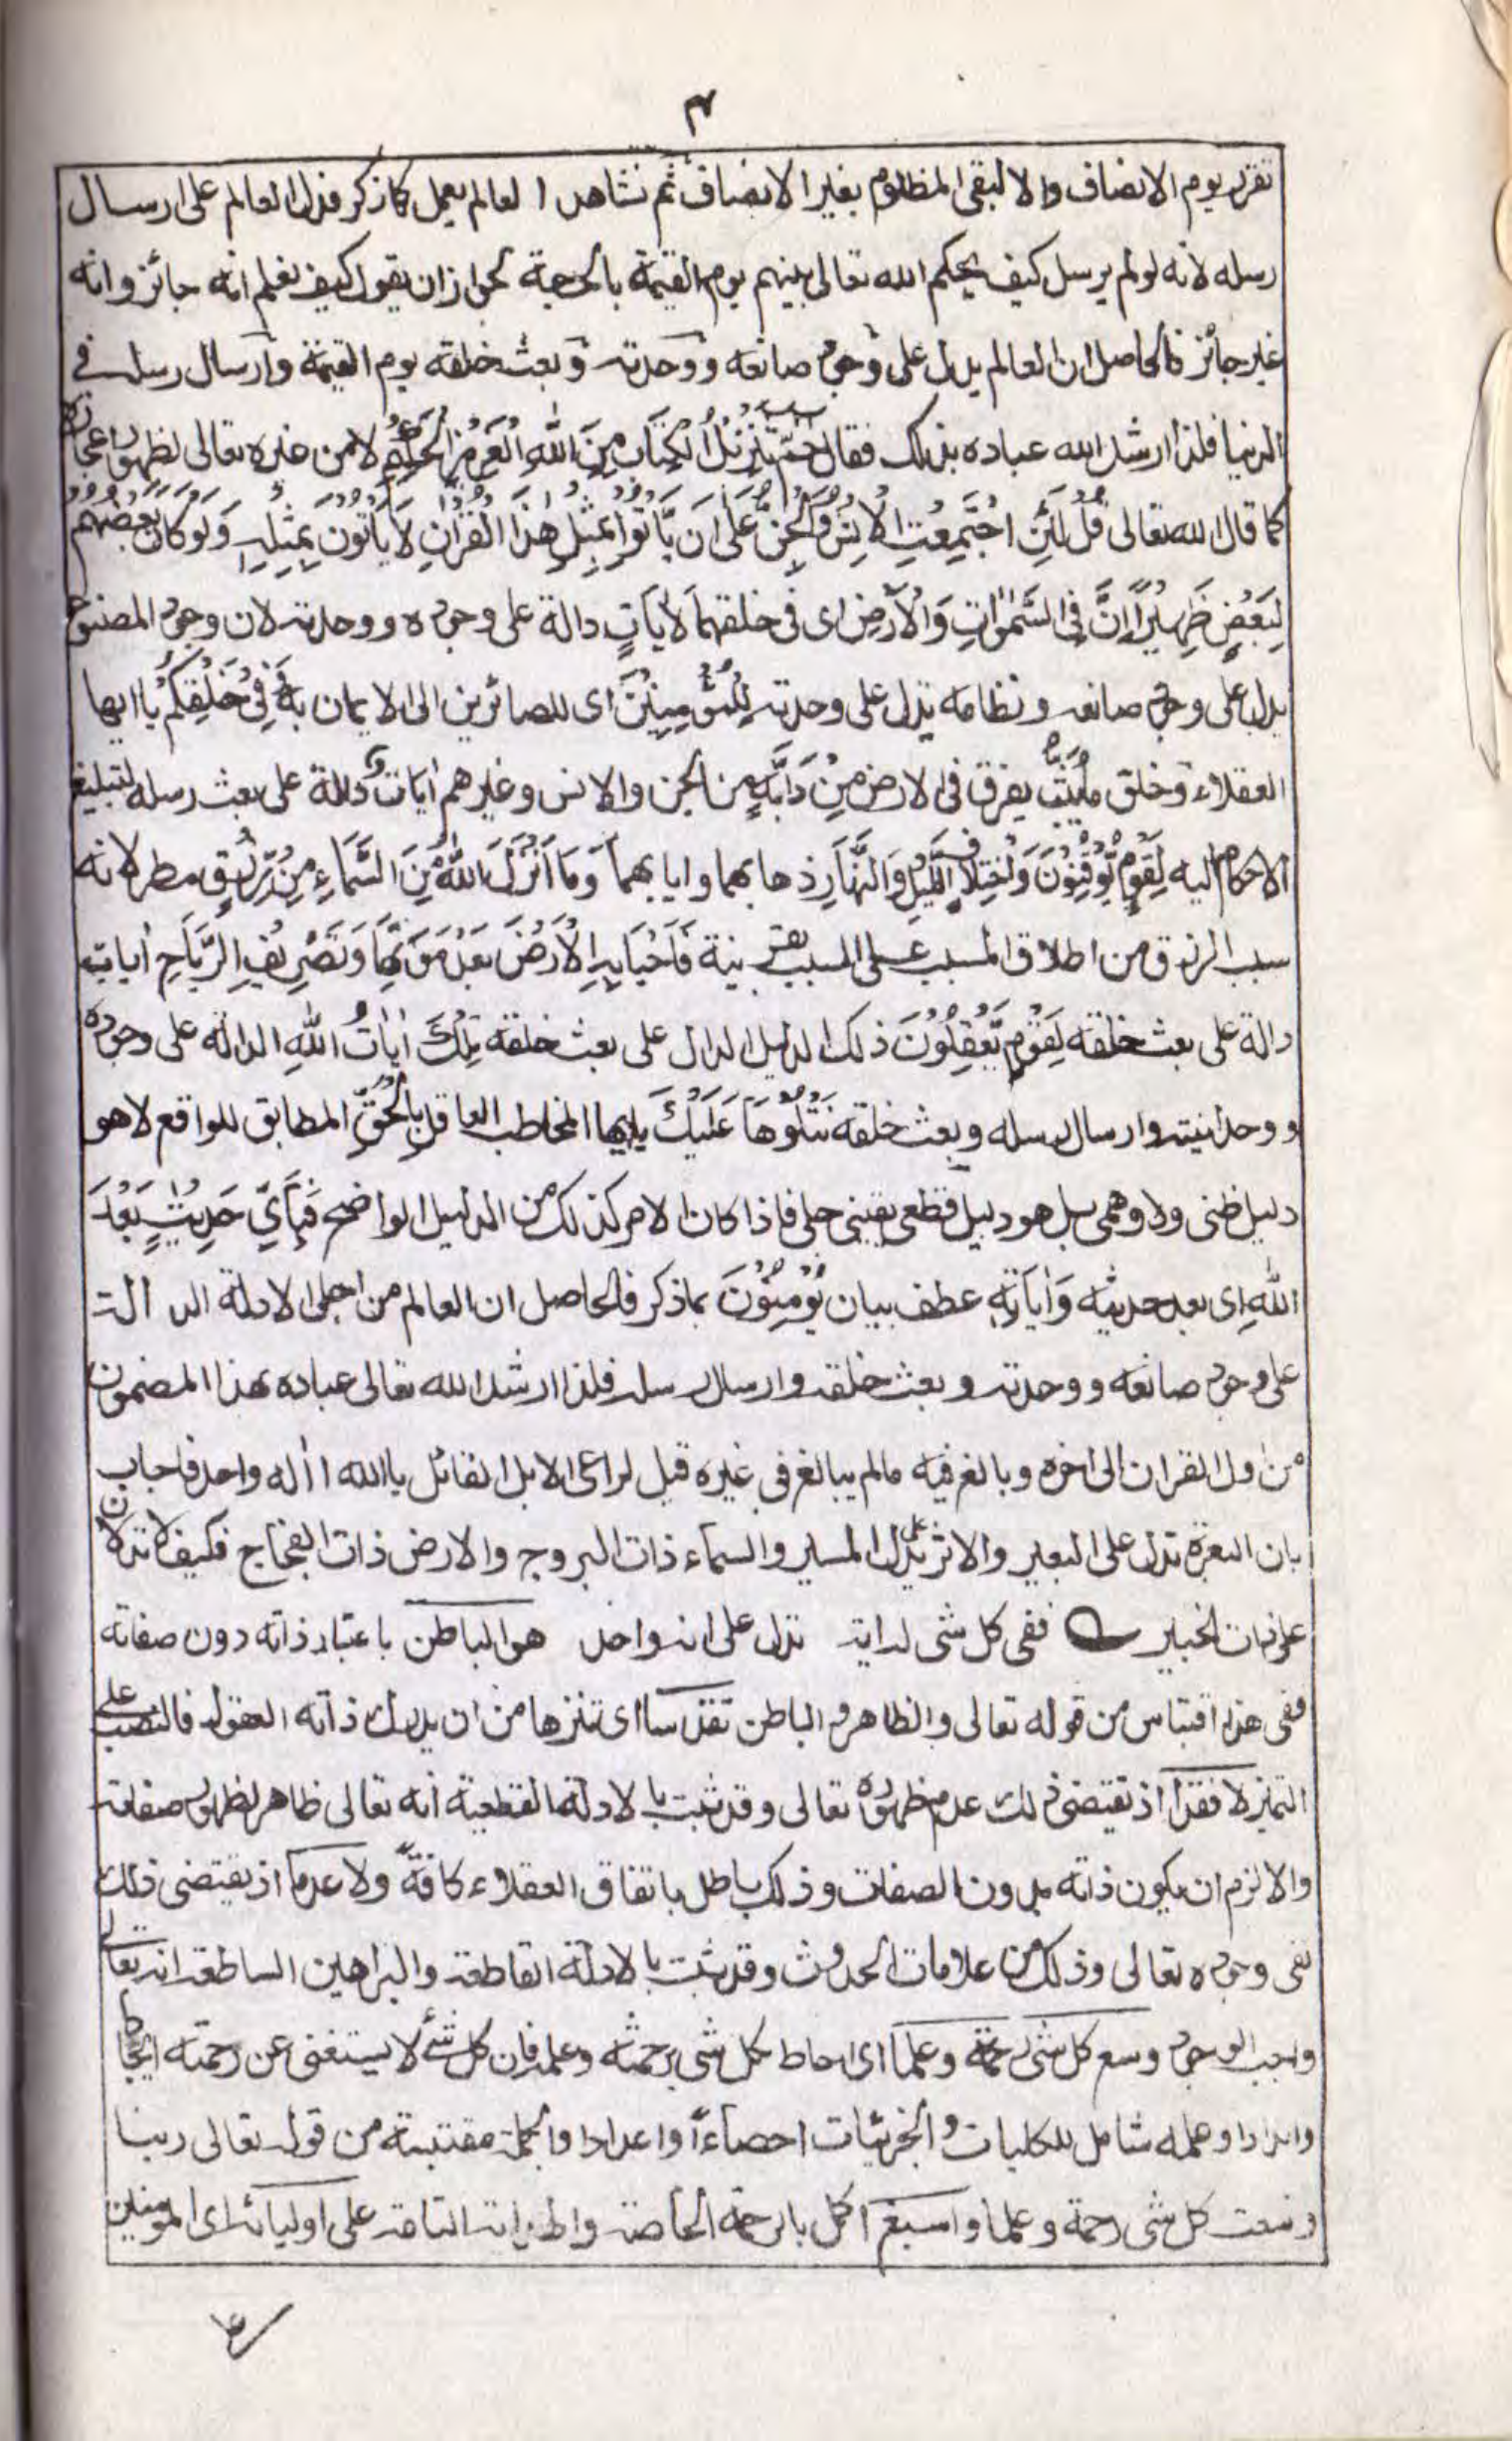 ۴
تقرر يوم الانصاف والا لبقى المظلوم بغير الانصاف ثم نشاهد العالم يعمل كما ذكر فدل العالم على ارسال
رسله لانه لو لم يرسل كيف يحكم الله تعالى بينهم يوم القيمة بالحجة لجواز ان يقول كيف نعلم انه جائز وانه
غير جائز فالحاصل ان العالم يدل على وجود صانعه ووحدته وبعث خلقه يوم القيمة وارسال رسله في
الدنيا فلذا ارشد الله عباده بذلك فقال حٰمّ تَنْزِيْلُ الْكِتَابِ مِنَ اللّٰهِ الْعَزِيْزِ الْحَكِيْمِ لا من غيره تعالى لظهور اعجازه
كما قال الله تعالى قُلْ لَئِنِ اجْتَمَعَتِ الْاِنْسُ وَالْجِنُّ عَلٰى اَنْ يَّأْتُوْا بِمِثْلِ هٰذَا الْقُرْاٰنِ لَا يَأْتُوْنَ بِمِثْلِهٖ وَلَوْ كَانَ بَعْضُهُمْ
لِبَعْضٍ ظَهِيْرًا اِنَّ فِي السَّمٰوٰتِ وَالْاَرْضِ اى فى خلقهما لَاٰيَاتٍ دالة على وجوده ووحدته لان وجود المصنوع
يدل على وجود صانعه ونظامه يدل على وحدته لِلْمُؤْمِنِيْنَ اى للصائرين الى الايمان به وَفِيْ خَلْقِكُمْ يا ايها
العقلاء وخلق مَا يَبُثُّ يفرق فى الارض مِنْ دَابَّةٍ من الجن والانس وغيرهم اٰيَاتٌ دالة على بعث رسله لتبليغ
الاحكام اليه لِقَوْمٍ يُّوْقِنُوْنَ وَاخْتِلَافِ الَّيْلِ وَالنَّهَارِ ذهابهما وايابهما وَمَا اَنْزَلَ اللّٰهُ مِنَ السَّمَاءِ مِنْ رِّزْقٍ مطر لانه
سبب الرزق من اطلاق المسبب على السبب بقرينة فَاَحْيَا بِهِ الْاَرْضَ بَعْدَ مَوْتِهَا وَتَصْرِيْفِ الرِّيَاحِ اٰيات
دالة على بعث خلقه لِقَوْمٍ يَّعْقِلُوْنَ ذلك الدليل الدال على بعث خلقه تِلْكَ اٰيَاتُ اللّٰهِ الدالة على وجوده
ووحدانيته وارسال رسله وبعث خلقه نَتْلُوْهَا عَلَيْكَ يا ايها المخاطب العاقل بِالْحَقِّ المطابق للواقع لا هو
دليل ظنى ولا وهمى بل هو دليل قطعى يقينى جلى فاذا كان الامر كذلك من الدليل الواضح فَبِاَيِّ حَدِيْثٍ بَعْدَ
اللّٰهِ اى بعد حديثه وَاٰيَاتِهٖ عطف بيان يُؤْمِنُوْنَ بما ذكر فالحاصل ان العالم من اجلى الادلة الدالة
على وجود صانعه ووحدته وبعث خلقه وارسال رسله فلذا ارشد الله تعالى عباده بهذا المضمون
من اول القران الى اخره وبالغ فيه مالم يبالغ فى غيره قيل لراعى الابل القائل يا الله أ اله واحد فاجاب
بان البعرة تدل على البعير والاثر يدل على المسير والسماء ذات البروج والارض ذات الفجاج فكيف لا تدلان
على ذات الخبير ففى كل شى له اية تدل على انه واحد هو الباطن باعتبار ذاته دون صفاته
ففى هذا اقتباس من قوله تعالى والظاهر والباطن تقدسا اى تنزها من ان يدرك ذاته العقول فالنصب على
التميز لا فقدا اذ يقتضى ذلك عدم ظهوره تعالى وقد ثبت بالادلة القطعية انه تعالى ظاهر لظهور صفاته
والا لزم ان يكون ذاته بدون الصفات وذلك باطل باتفاق العقلاء كافة ولا عدما اذ يقتضى ذلك
نفى وجوده تعالى وذلك من علامات الحدوث وقد ثبت بالادلة القاطعة والبراهين الساطعة انه تعالى
واجب الوجود وسع كل شى رحمة وعلما اى احاط بكل شى برحمته وعلمه فان كل شئ لا يستغنى عن رحمته ايجادا
وامدادا وعلمه شامل للكليات والجزئيات احصاءً واعدادا والجملة مقتبسة من قوله تعالى ربنا
وسعت كل شى رحمة وعلما واسبغ اكمل بالرحمة الخاصة التامة على اوليائه اى المؤمنين